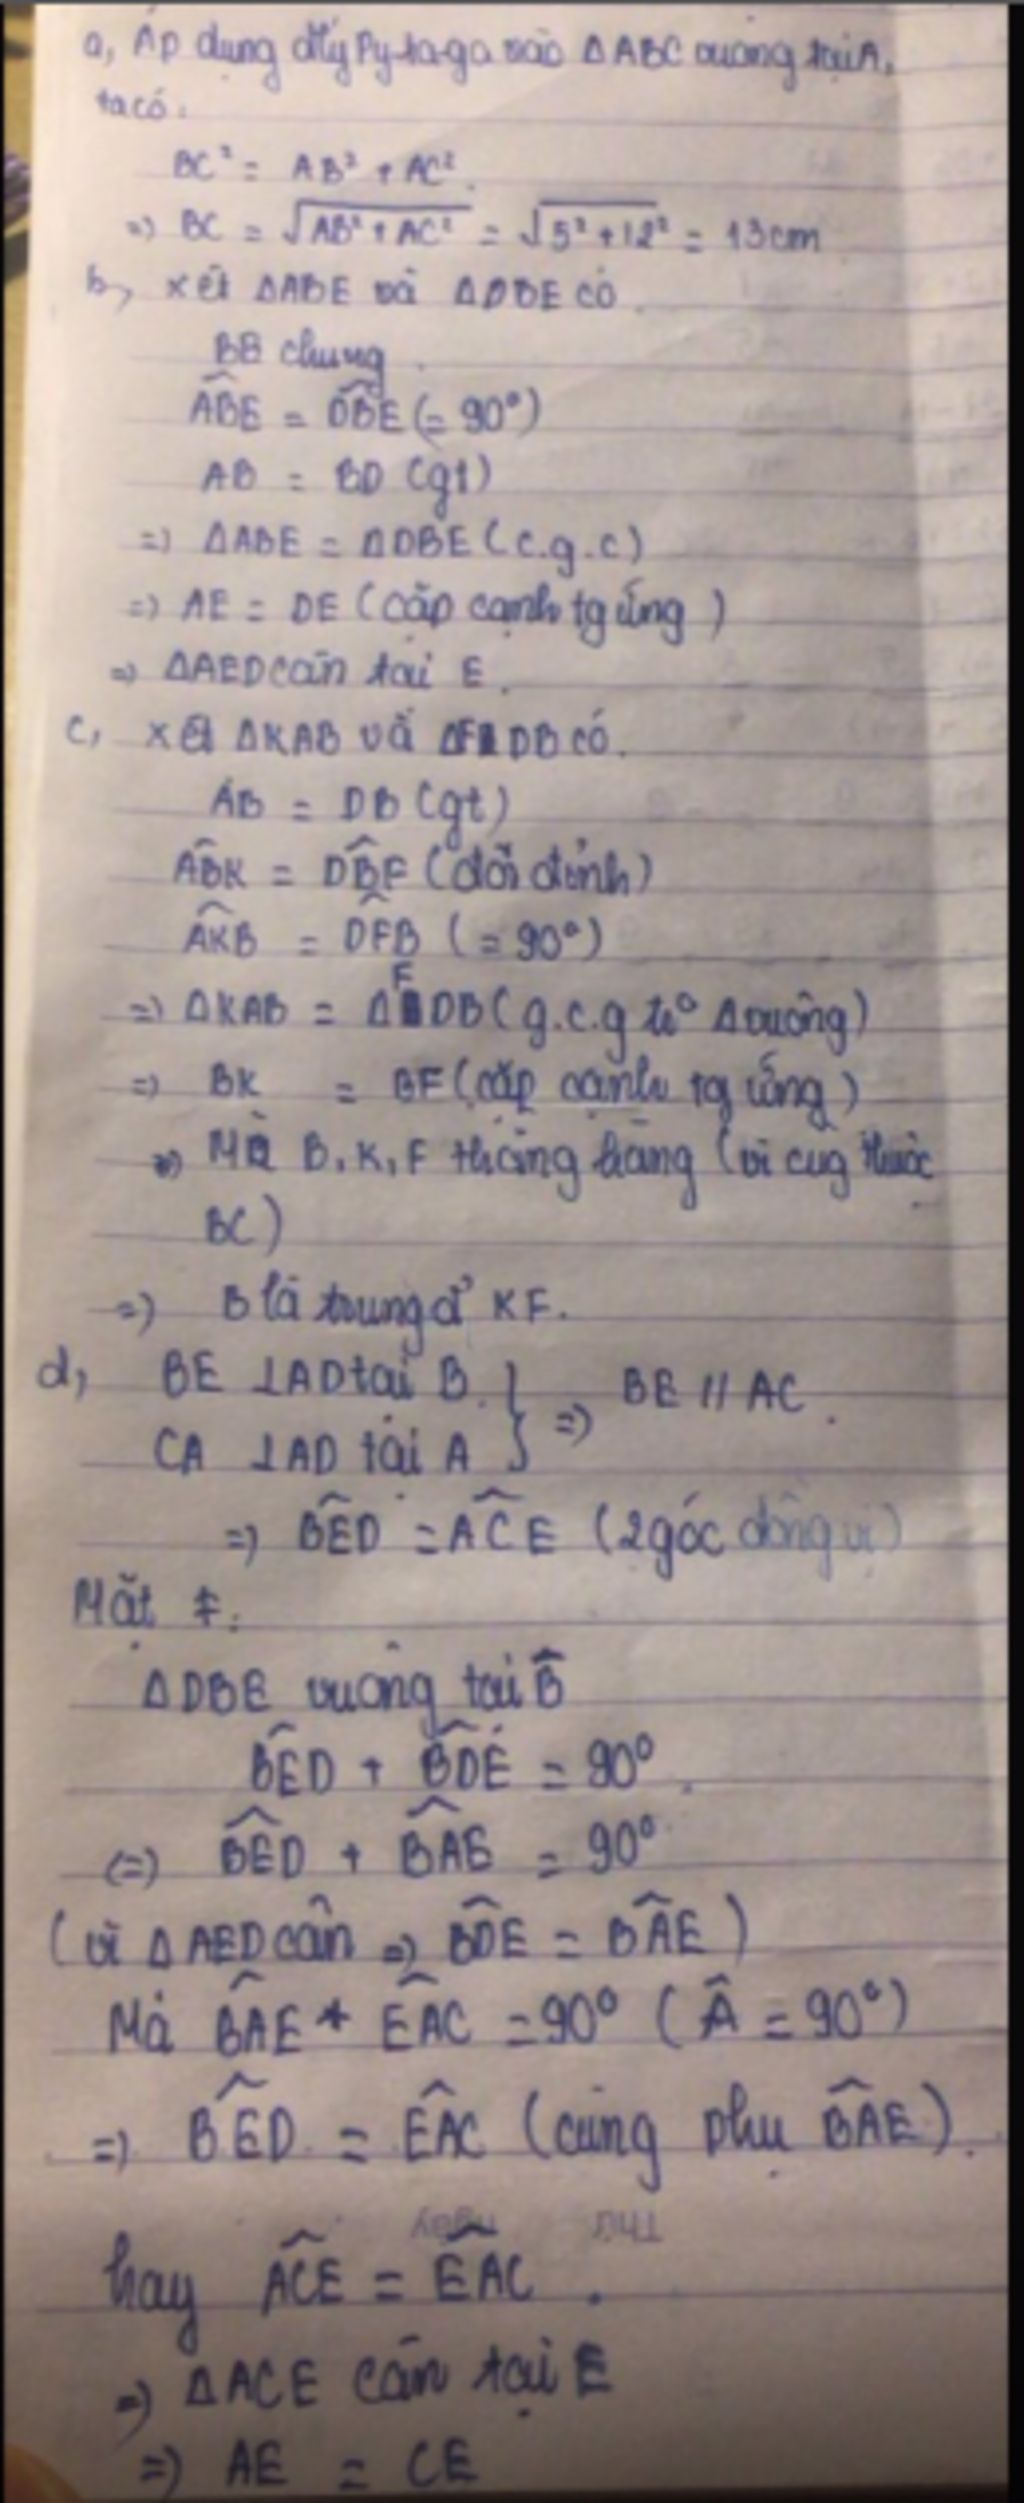 a, Áp dụng đlý Py-ta-go vào ΔABC vuông tại A,
ta có:
BC² = AB² + AC².
=> BC = √(AB² + AC²) = √(5² + 12²) = 13cm
b, xét ΔABE và ΔDBE có
BB chung.
ABE^ = DBE^ (= 90°)
AB = BD (gt)
=> ΔABE = ΔDBE (c.g.c)
=> AE = DE (cặp cạnh tg ứng)
=> ΔAED cân tại E.
c, xét ΔKAB và ΔFDB có.
AB = DB (gt)
ABK^ = DBF^ (đối đỉnh)
AKB^ = DFB^ (= 90°)
=> ΔKAB = ΔFDB (g.c.g Δvuông)
=> BK = BF (cặp cạnh tg ứng)
=> Mà B, K, F thẳng hàng (vì cùg thuộc
BC)
=> B là trung đ' KF.
d, BE ⊥AD tại B. } => BE // AC.
CA ⊥AD tại A }
=> BED^ = ACE^ (2 góc đồng vị)
Mặt ≠:
ΔDBE vuông tại B^
BED^ + BDE^ = 90°.
<=> BED^ + BAE^ = 90°
(vì ΔAED cân => BDE^ = BAE^)
Mà BAE^ + EAC^ = 90° (A^ = 90°)
=> BED^ = EAC^ (cùng phụ BAE^).
Thứ ngày
hay ACE^ = EAC^.
=> ΔACE cân tại E
=> AE = CE